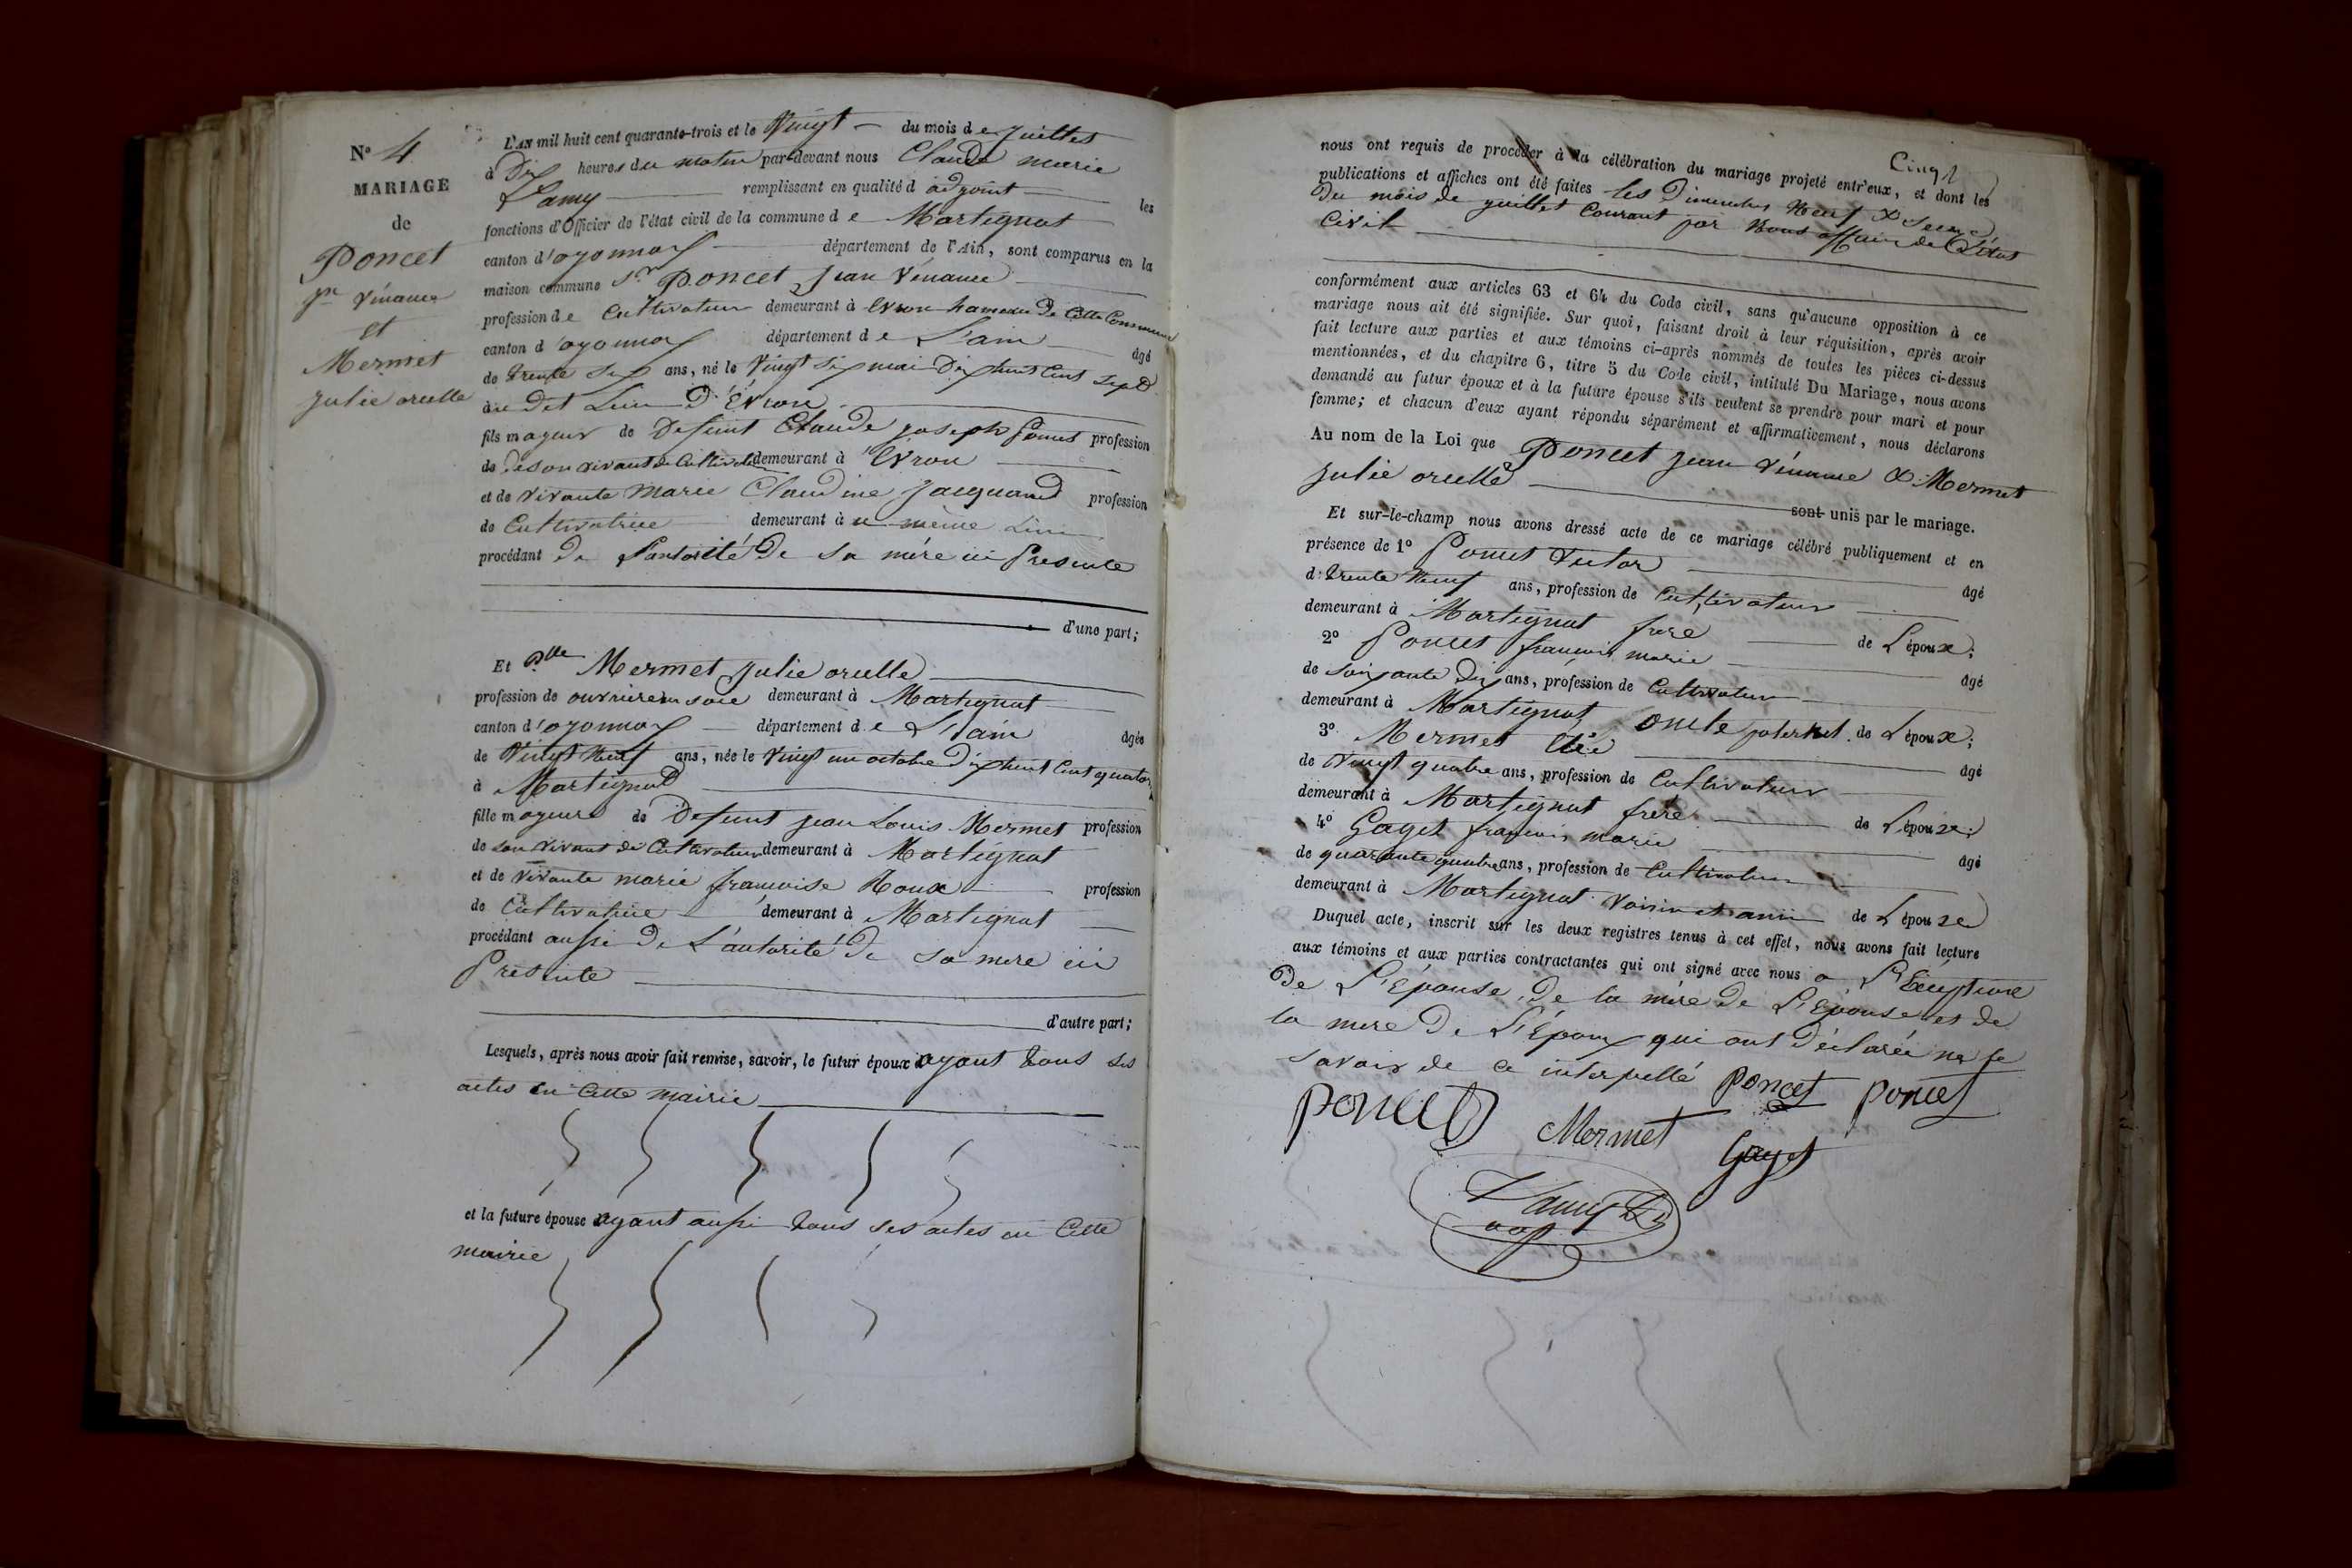 N° 4
MARIAGE
de
Poncet
jn Vénance
et
Mermet
Julie orcelle
L'AN mil huit cent quarante-trois et le Vingt du mois de Juillet
à Dix heures du matin par-devant nous Claude marie
Lamy remplissant en qualité d adjoint les
fonctions d'Officier de l'état civil de la commune de Martignat
canton d'oyonnax département de l'Ain, sont comparus en la
maison commune Sr Poncet Jean Vénance
profession de Cultivateur demeurant à Evron hameau de Cette Commune
canton d'oyonnax département de L'ain âgé
de trente six ans, né le Vingt six mai Dix huit Cent Sept
au dit Lieu D'Évron
fils majeur de Defunt Claude joseph Poncet profession
de de son vivant de Cultivateur demeurant à Evron
et de vivante Marie Claudine Jacquand profession
de Cultivatrice demeurant à u même Lieu
procédant de L'autorité De sa mère ici Presente
d'une part;
Et Dlle Mermet Julie orcelle
profession de ouvriere en soie demeurant à Martignat
canton d'oyonnax département de L'ain âgée
de Vingt Neuf ans, née le Vingt un octobre Dix huit Cent quatorze
à Martignat
fille majeure de Defunt Jean Louis Mermet profession
de son vivant de Cultivateur demeurant à Martignat
et de Vivante marie françoise Roux profession
de Cultivatrice demeurant à Martignat
procédant aussi De L'autorité De sa mere ici
Presente
d'autre part;
Lesquels, après nous avoir fait remise, savoir, le futur époux ayant tous ses
actes en Cette mairie
et la future épouse ayant aussi tous ses actes en Cette
mairie
Cinq
nous ont requis de procéder à la célébration du mariage projeté entr'eux, et dont les
publications et affiches ont été faites les Dimanches Neuf & Seize
Du mois de juillet Courant par Nous officier de L'État
Civil
conformément aux articles 63 et 64 du Code civil, sans qu'aucune opposition à ce
mariage nous ait été signifiée. Sur quoi, faisant droit à leur réquisition, après avoir
fait lecture aux parties et aux témoins ci-après nommés de toutes les pièces ci-dessus
mentionnées, et du chapitre 6, titre 5 du Code civil, intitulé Du Mariage, nous avons
demandé au futur époux et à la future épouse s'ils veulent se prendre pour mari et pour
femme; et chacun d'eux ayant répondu séparément et affirmativement, nous déclarons
Au nom de la Loi que Poncet Jean Vénance & Mermet
Julie orcelle sont unis par le mariage.
Et sur-le-champ nous avons dressé acte de ce mariage célébré publiquement et en
présence de 1° Poncet Victor âgé
d trente Neuf ans, profession de Cultivateur
demeurant à Martignat frere de L'époux;
2° Poncet françois marie âgé
de soixante Dix ans, profession de Cultivateur
demeurant à Martignat oncle paternel de L'époux;
3° Mermet Elie âgé
de Vingt quatre ans, profession de Cultivateur
demeurant à Martignat frère de L'épouse;
4° Gaget françois marie âgé
de quarante quatre ans, profession de Cultivateur
demeurant à Martignat Voisin et ami de L'épouse
Duquel acte, inscrit sur les deux registres tenus à cet effet, nous avons fait lecture
aux témoins et aux parties contractantes qui ont signé avec nous a L'Exception
De L'Épouse, De la mère De L'Épouse et de
la mere De L'Époux qui ont Déclaré ne le
savoir de ce interpellé Poncet Poncet
Poncet Mermet Gaget
Lamy